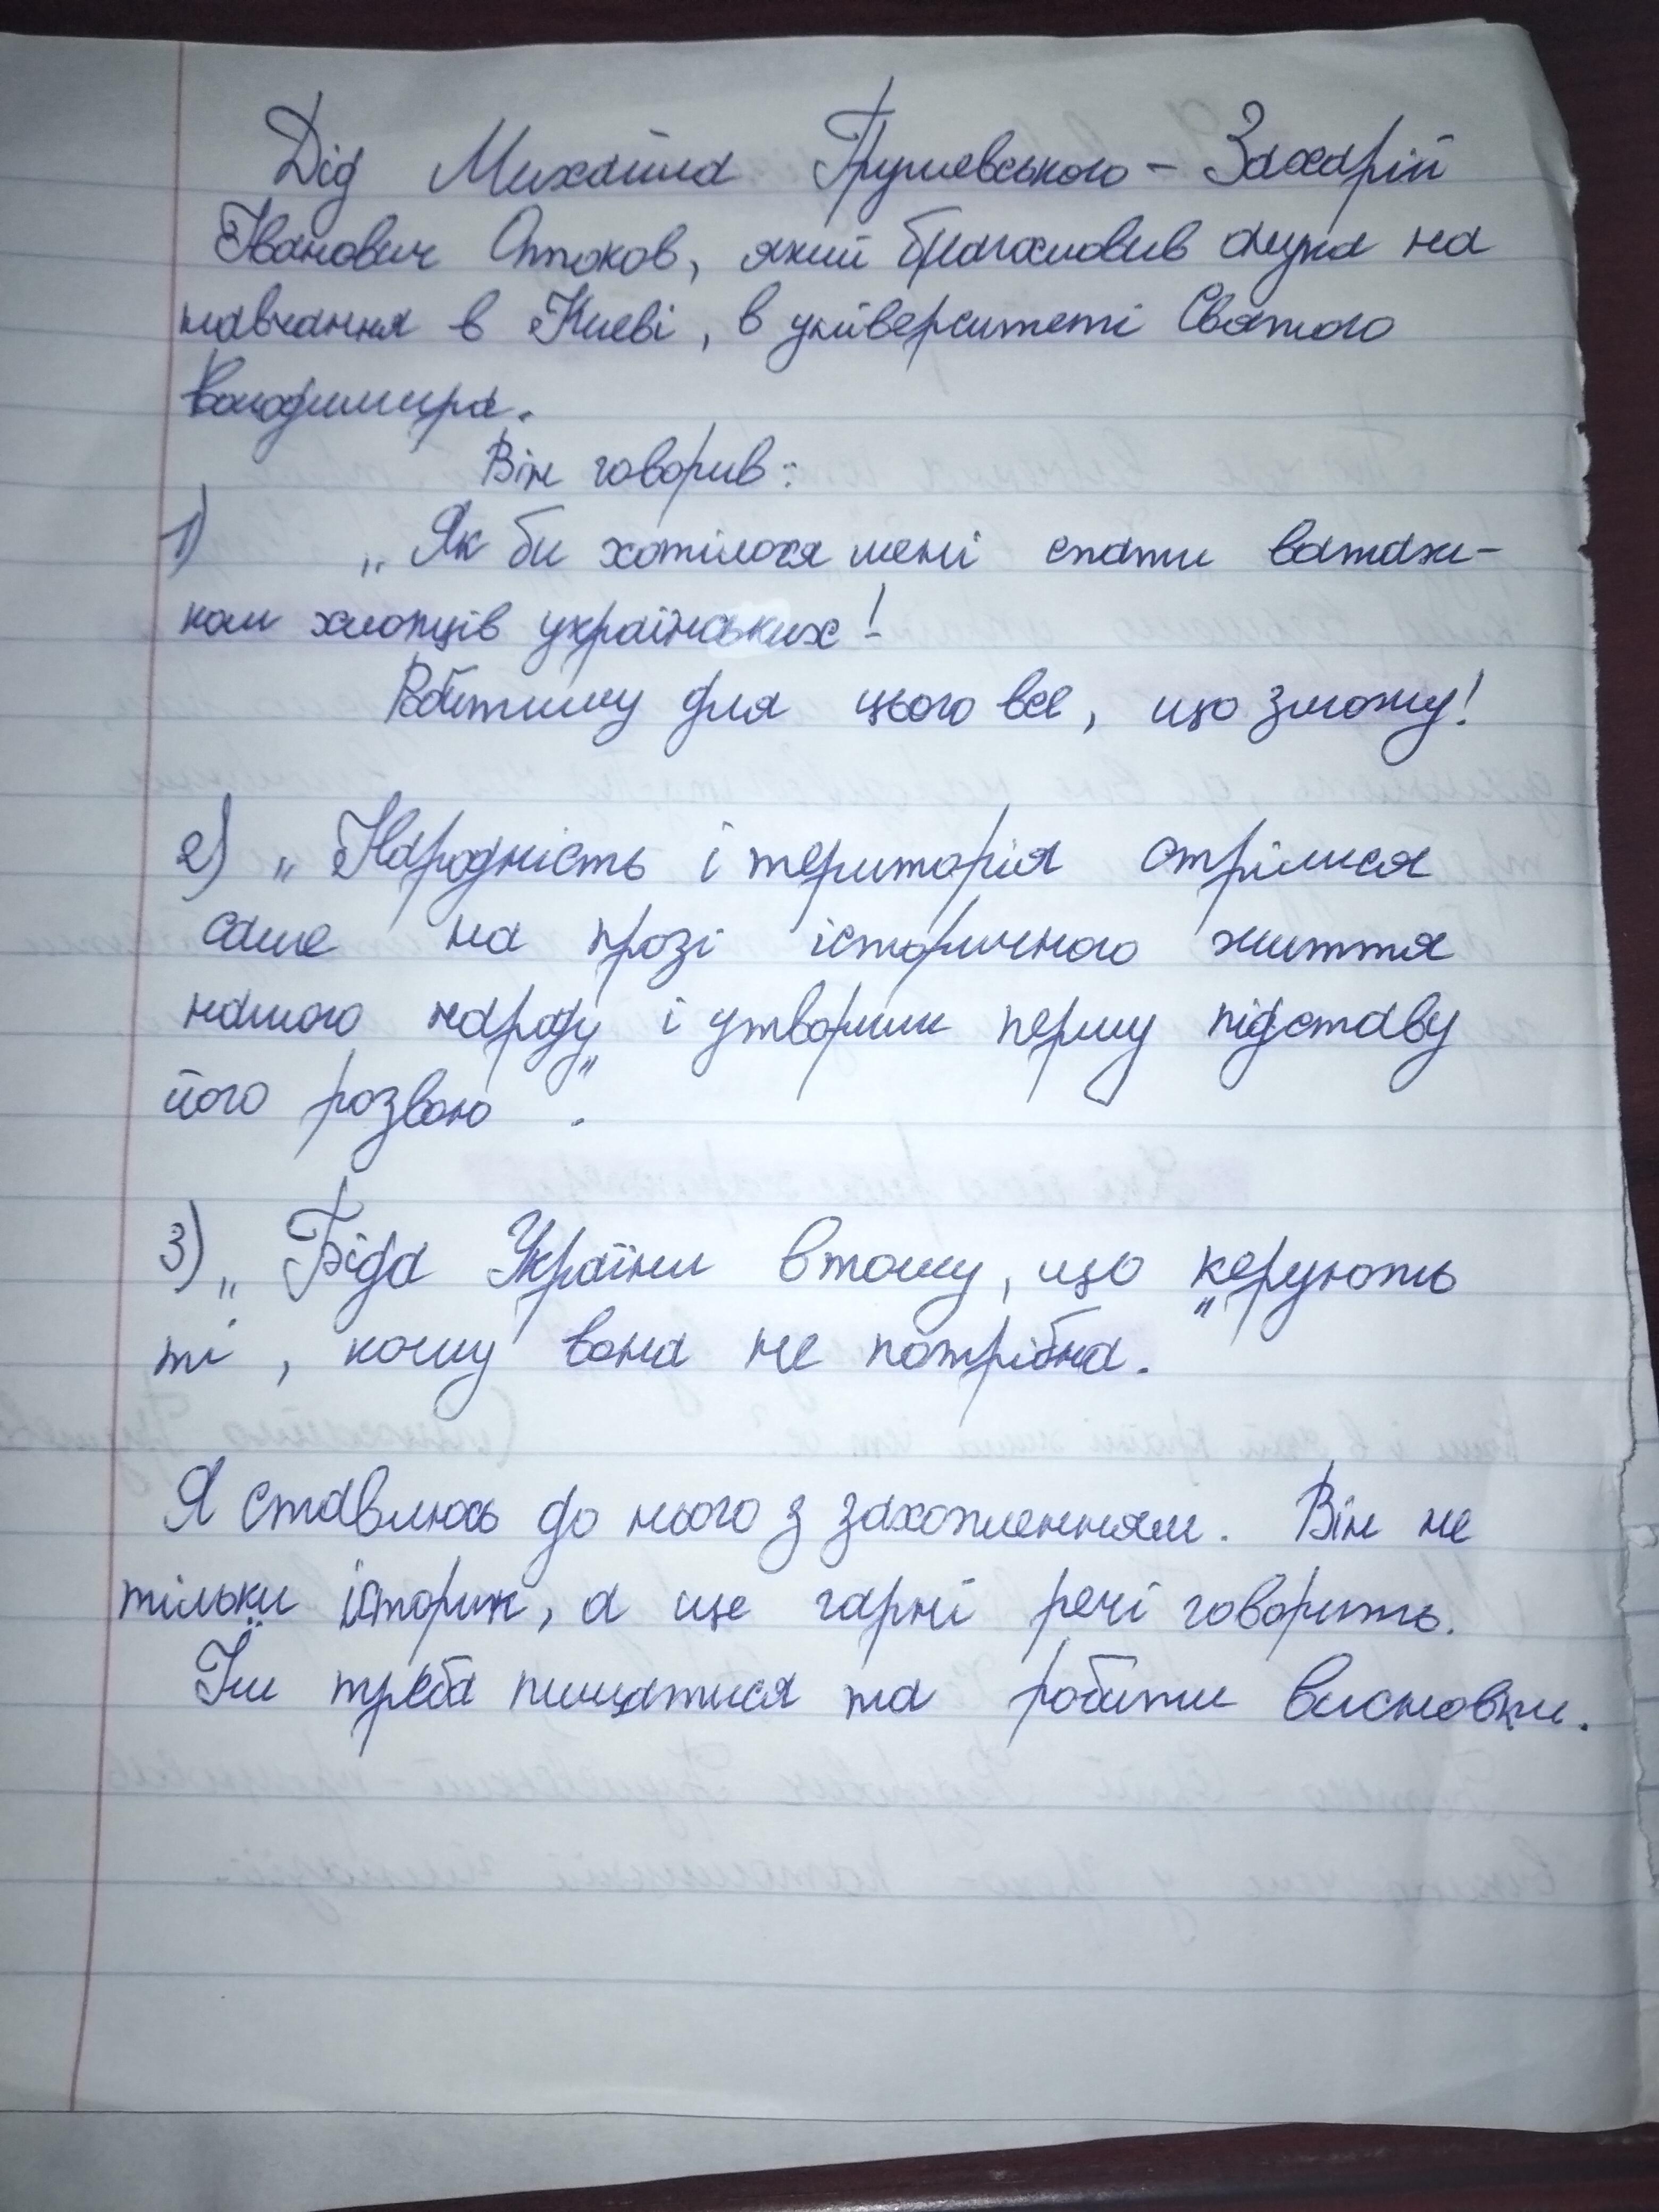 Дід Михайла Грушевського - Захарій
Іванович Оппоков, який благословив онука на
навчання в Києві, в університеті Святого
Володимира.
Він говорив:
1) „Як би хотілося мені стати ватаж-
ком хлопців українських!
Робитиму для цього все, що зможу!
2) „Народність і територія стрілися
саме на прозі історичного життя
нашого народу і утворили першу підставу
його розвою".
3) „Біда України в тому, що керують
ті, кому вона не потрібна."
Я ставлюсь до нього з захопленням. Він не
тільки історик, а ще гарні речі говорить.
Їм треба пишатися та робити висновки.